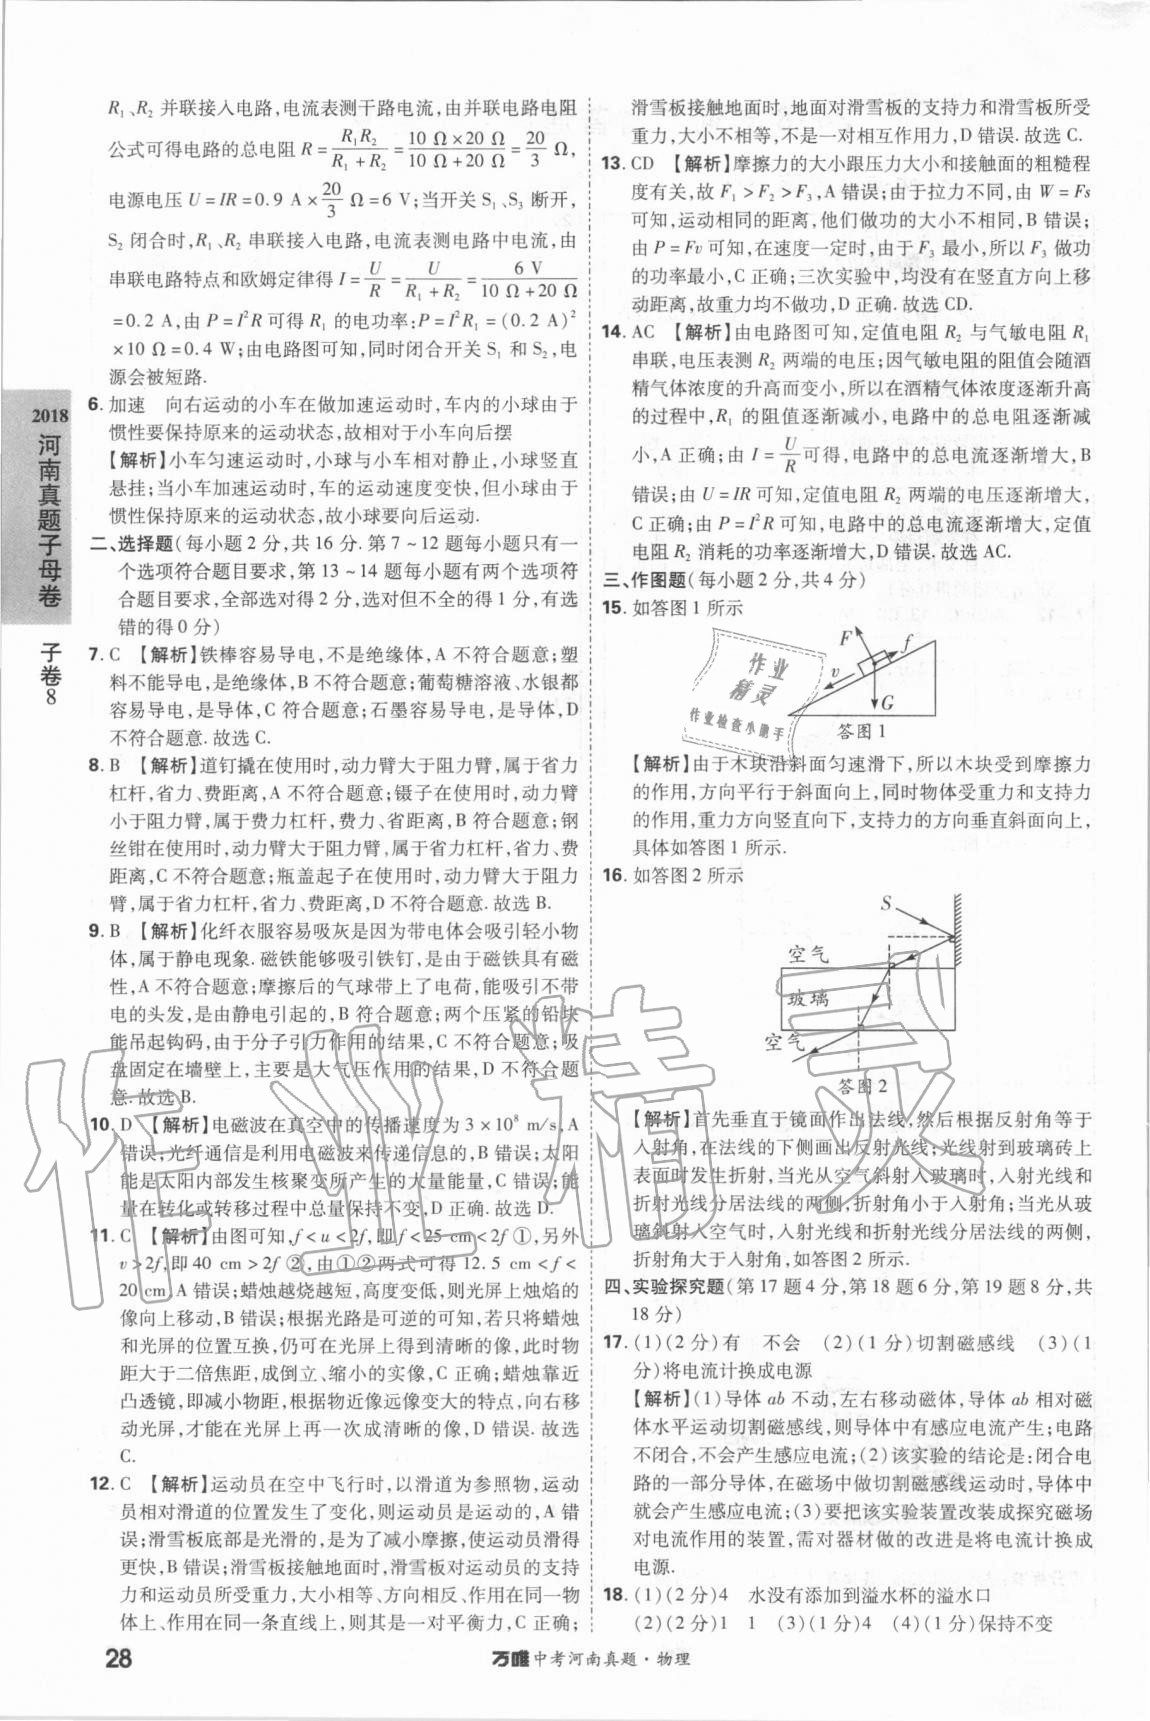 R₁、R₂ 并联接入电路,电流表测干路电流,由并联电路电阻
公式可得电路的总电阻 R = R₁R₂/(R₁+R₂) = (10 Ω×20 Ω)/(10 Ω+20 Ω) = 20/3 Ω,
电源电压 U=IR=0.9 A×20/3 Ω=6 V;当开关 S₁、S₃ 断开,
S₂ 闭合时,R₁、R₂ 串联接入电路,电流表测电路中电流,由
串联电路特点和欧姆定律得 I = U/R = U/(R₁+R₂) = 6 V/(10 Ω+20 Ω)
=0.2 A,由 P=I²R 可得 R₁ 的电功率:P=I²R₁=(0.2 A)²
×10 Ω=0.4 W;由电路图可知,同时闭合开关 S₁ 和 S₂,电
源会被短路.
6. 加速 向右运动的小车在做加速运动时,车内的小球由于
惯性要保持原来的运动状态,故相对于小车向后摆
【解析】小车匀速运动时,小球与小车相对静止,小球竖直
悬挂;当小车加速运动时,车的运动速度变快,但小球由于
惯性保持原来的运动状态,故小球要向后运动.
二、选择题(每小题 2 分,共 16 分. 第 7~12 题每小题只有一
个选项符合题目要求,第 13~14 题每小题有两个选项符
合题目要求,全部选对得 2 分,选对但不全的得 1 分,有选
错的得 0 分)
7. C 【解析】铁棒容易导电,不是绝缘体,A 不符合题意;塑
料不能导电,是绝缘体,B 不符合题意;葡萄糖溶液、水银都
容易导电,是导体,C 符合题意;石墨容易导电,是导体,D
不符合题意. 故选 C.
8. B 【解析】道钉撬在使用时,动力臂大于阻力臂,属于省力
杠杆,省力、费距离,A 不符合题意;镊子在使用时,动力臂
小于阻力臂,属于费力杠杆,费力、省距离,B 符合题意;钢
丝钳在使用时,动力臂大于阻力臂,属于省力杠杆,省力、费
距离,C 不符合题意;瓶盖起子在使用时,动力臂大于阻力
臂,属于省力杠杆,省力、费距离,D 不符合题意. 故选 B.
9. B 【解析】化纤衣服容易吸灰是因为带电体会吸引轻小物
体,属于静电现象. 磁铁能够吸引铁钉,是由于磁铁具有磁
性,A 不符合题意;摩擦后的气球带上了电荷,能吸引不带
电的头发,是由静电引起的,B 符合题意;两个压紧的铅块
能吊起钩码,由于分子引力作用的结果,C 不符合题意;吸
盘固定在墙壁上,主要是大气压作用的结果,D 不符合题
意. 故选 B.
10. D 【解析】电磁波在真空中的传播速度为 3×10⁸ m/s,A
错误;光纤通信是利用电磁波来传递信息的,B 错误;太阳
能是太阳内部发生核聚变所产生的大量能量,C 错误;能
量在转化或转移过程中总量保持不变,D 正确. 故选 D.
11. C 【解析】由图可知,f<u<2f,即 f<25 cm<2f ①,另外
v>2f,即 40 cm>2f ②,由①②两式可得 12.5 cm<f<
20 cm,A 错误;蜡烛越烧越短,高度变低,则光屏上烛焰的
像向上移动,B 错误;根据光路是可逆的可知,若只将蜡烛
和光屏的位置互换,仍可在光屏上得到清晰的像,此时物
距大于二倍焦距,成倒立、缩小的实像,C 正确;蜡烛靠近
凸透镜,即减小物距,根据物近像远像变大的特点,向右移
动光屏,才能在光屏上再一次成清晰的像,D 错误. 故选
C.
12. C 【解析】运动员在空中飞行时,以滑道为参照物,运动
员相对滑道的位置发生了变化,则运动员是运动的,A 错
误;滑雪板底部是光滑的,是为了减小摩擦,使运动员滑得
更快,B 错误;滑雪板接触地面时,滑雪板对运动员的支持
力和运动员所受重力,大小相等、方向相反、作用在同一物
体上、作用在同一条直线上,则其是一对平衡力,C 正确;
滑雪板接触地面时,地面对滑雪板的支持力和滑雪板所受
重力,大小不相等,不是一对相互作用力,D 错误. 故选 C.
13. CD 【解析】摩擦力的大小跟压力大小和接触面的粗糙程
度有关,故 F₁>F₂>F₃,A 错误;由于拉力不同,由 W=Fs
可知,运动相同的距离,他们做功的大小不相同,B 错误;
由 P=Fv 可知,在速度一定时,由于 F₃ 最小,所以 F₃ 做功
的功率最小,C 正确;三次实验中,均没有在竖直方向上移
动距离,故重力均不做功,D 正确. 故选 CD.
14. AC 【解析】由电路图可知,定值电阻 R₂ 与气敏电阻 R₁
串联,电压表测 R₂ 两端的电压;因气敏电阻的阻值会随酒
精气体浓度的升高而变小,所以在酒精气体浓度逐渐升高
的过程中,R₁ 的阻值逐渐减小,电路中的总电阻逐渐减
小,A 正确;由 I = U/R 可得,电路中的总电流逐渐增大,B
错误;由 U=IR 可知,定值电阻 R₂ 两端的电压逐渐增大,
C 正确;由 P=I²R 可知,电路中的总电流逐渐增大,定值
电阻 R₂ 消耗的功率逐渐增大,D 错误. 故选 AC.
三、作图题(每小题 2 分,共 4 分)
15. 如答图 1 所示
F f
v
G
答图 1
【解析】由于木块沿斜面匀速滑下,所以木块受到摩擦力
的作用,方向平行于斜面向上,同时物体受重力和支持力
的作用,重力方向竖直向下,支持力的方向垂直斜面向上,
具体如答图 1 所示.
16. 如答图 2 所示
S
空气
玻璃
空气
答图 2
【解析】首先垂直于镜面作出法线,然后根据反射角等于
入射角,在法线的下侧画出反射光线;光线射到玻璃砖上
表面时发生折射,当光从空气斜射入玻璃时,入射光线和
折射光线分居法线的两侧,折射角小于入射角;当光从玻
璃斜射入空气时,入射光线和折射光线分居法线的两侧,
折射角大于入射角,如答图 2 所示.
四、实验探究题(第 17 题 4 分,第 18 题 6 分,第 19 题 8 分,共
18 分)
17. (1)(2 分)有 不会 (2)(1 分)切割磁感线 (3)(1
分)将电流计换成电源
【解析】(1)导体 ab 不动,左右移动磁体,导体 ab 相对磁
体水平运动切割磁感线,则导体中有感应电流产生;电路
不闭合,不会产生感应电流;(2)该实验的结论是:闭合电
路的一部分导体,在磁场中做切割磁感线运动时,导体中
就会产生感应电流;(3)要把该实验装置改装成探究磁场
对电流作用的装置,需对器材做的改进是将电流计换成
电源.
18. (1)(2 分)4 水没有添加到溢水杯的溢水口
(2)(2 分)1 1 (3)(1 分)4 (4)(1 分)保持不变
2018
河南真题子母卷
子卷 8
作业
精灵
作业检查小助手
作业精灵
28
万唯中考河南真题·物理